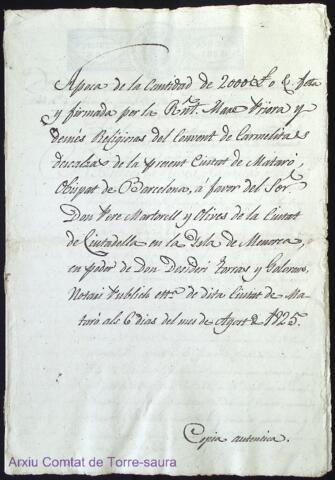 Apoca de la Cantidad de 2000 ff o &. feta
y firmada per la Rnt. Mare Priora y
demés Religiosas del Convent de Carmelitas
descalsas de la present Ciutat de Mataró,
Obispat de Barcelona, á favor del Sor.
Don Pere Martorell y Olives de la Ciutat
de Ciutadella en la Isla de Menorca,
en poder de Don Desideri Torras y
Notari Publich de dita Ciutat de Ma-
taró als 6 dias del mes de Agost de 1825.
Copia autentica.
Arxiu Comtat de Torre-saura